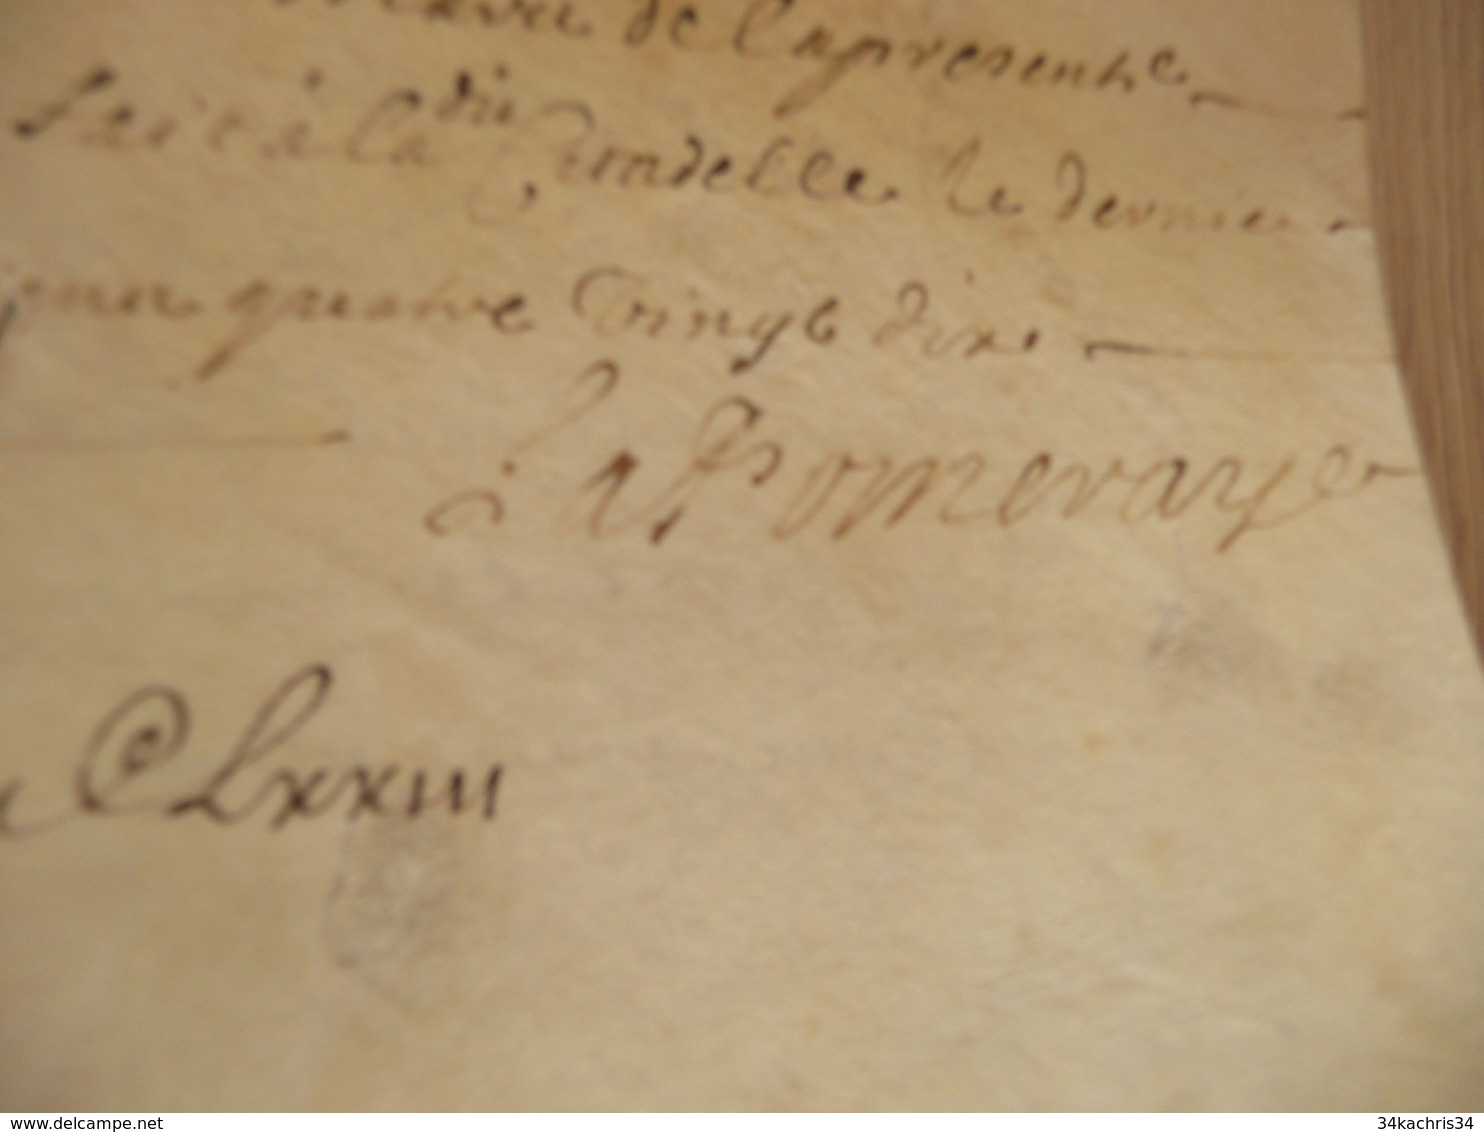 de lapresente
faict à la ditte Citadelle le dernier
quatre vingt dix
La Pommeraye
CLxxiii
www.delcampe.net
34kachris34